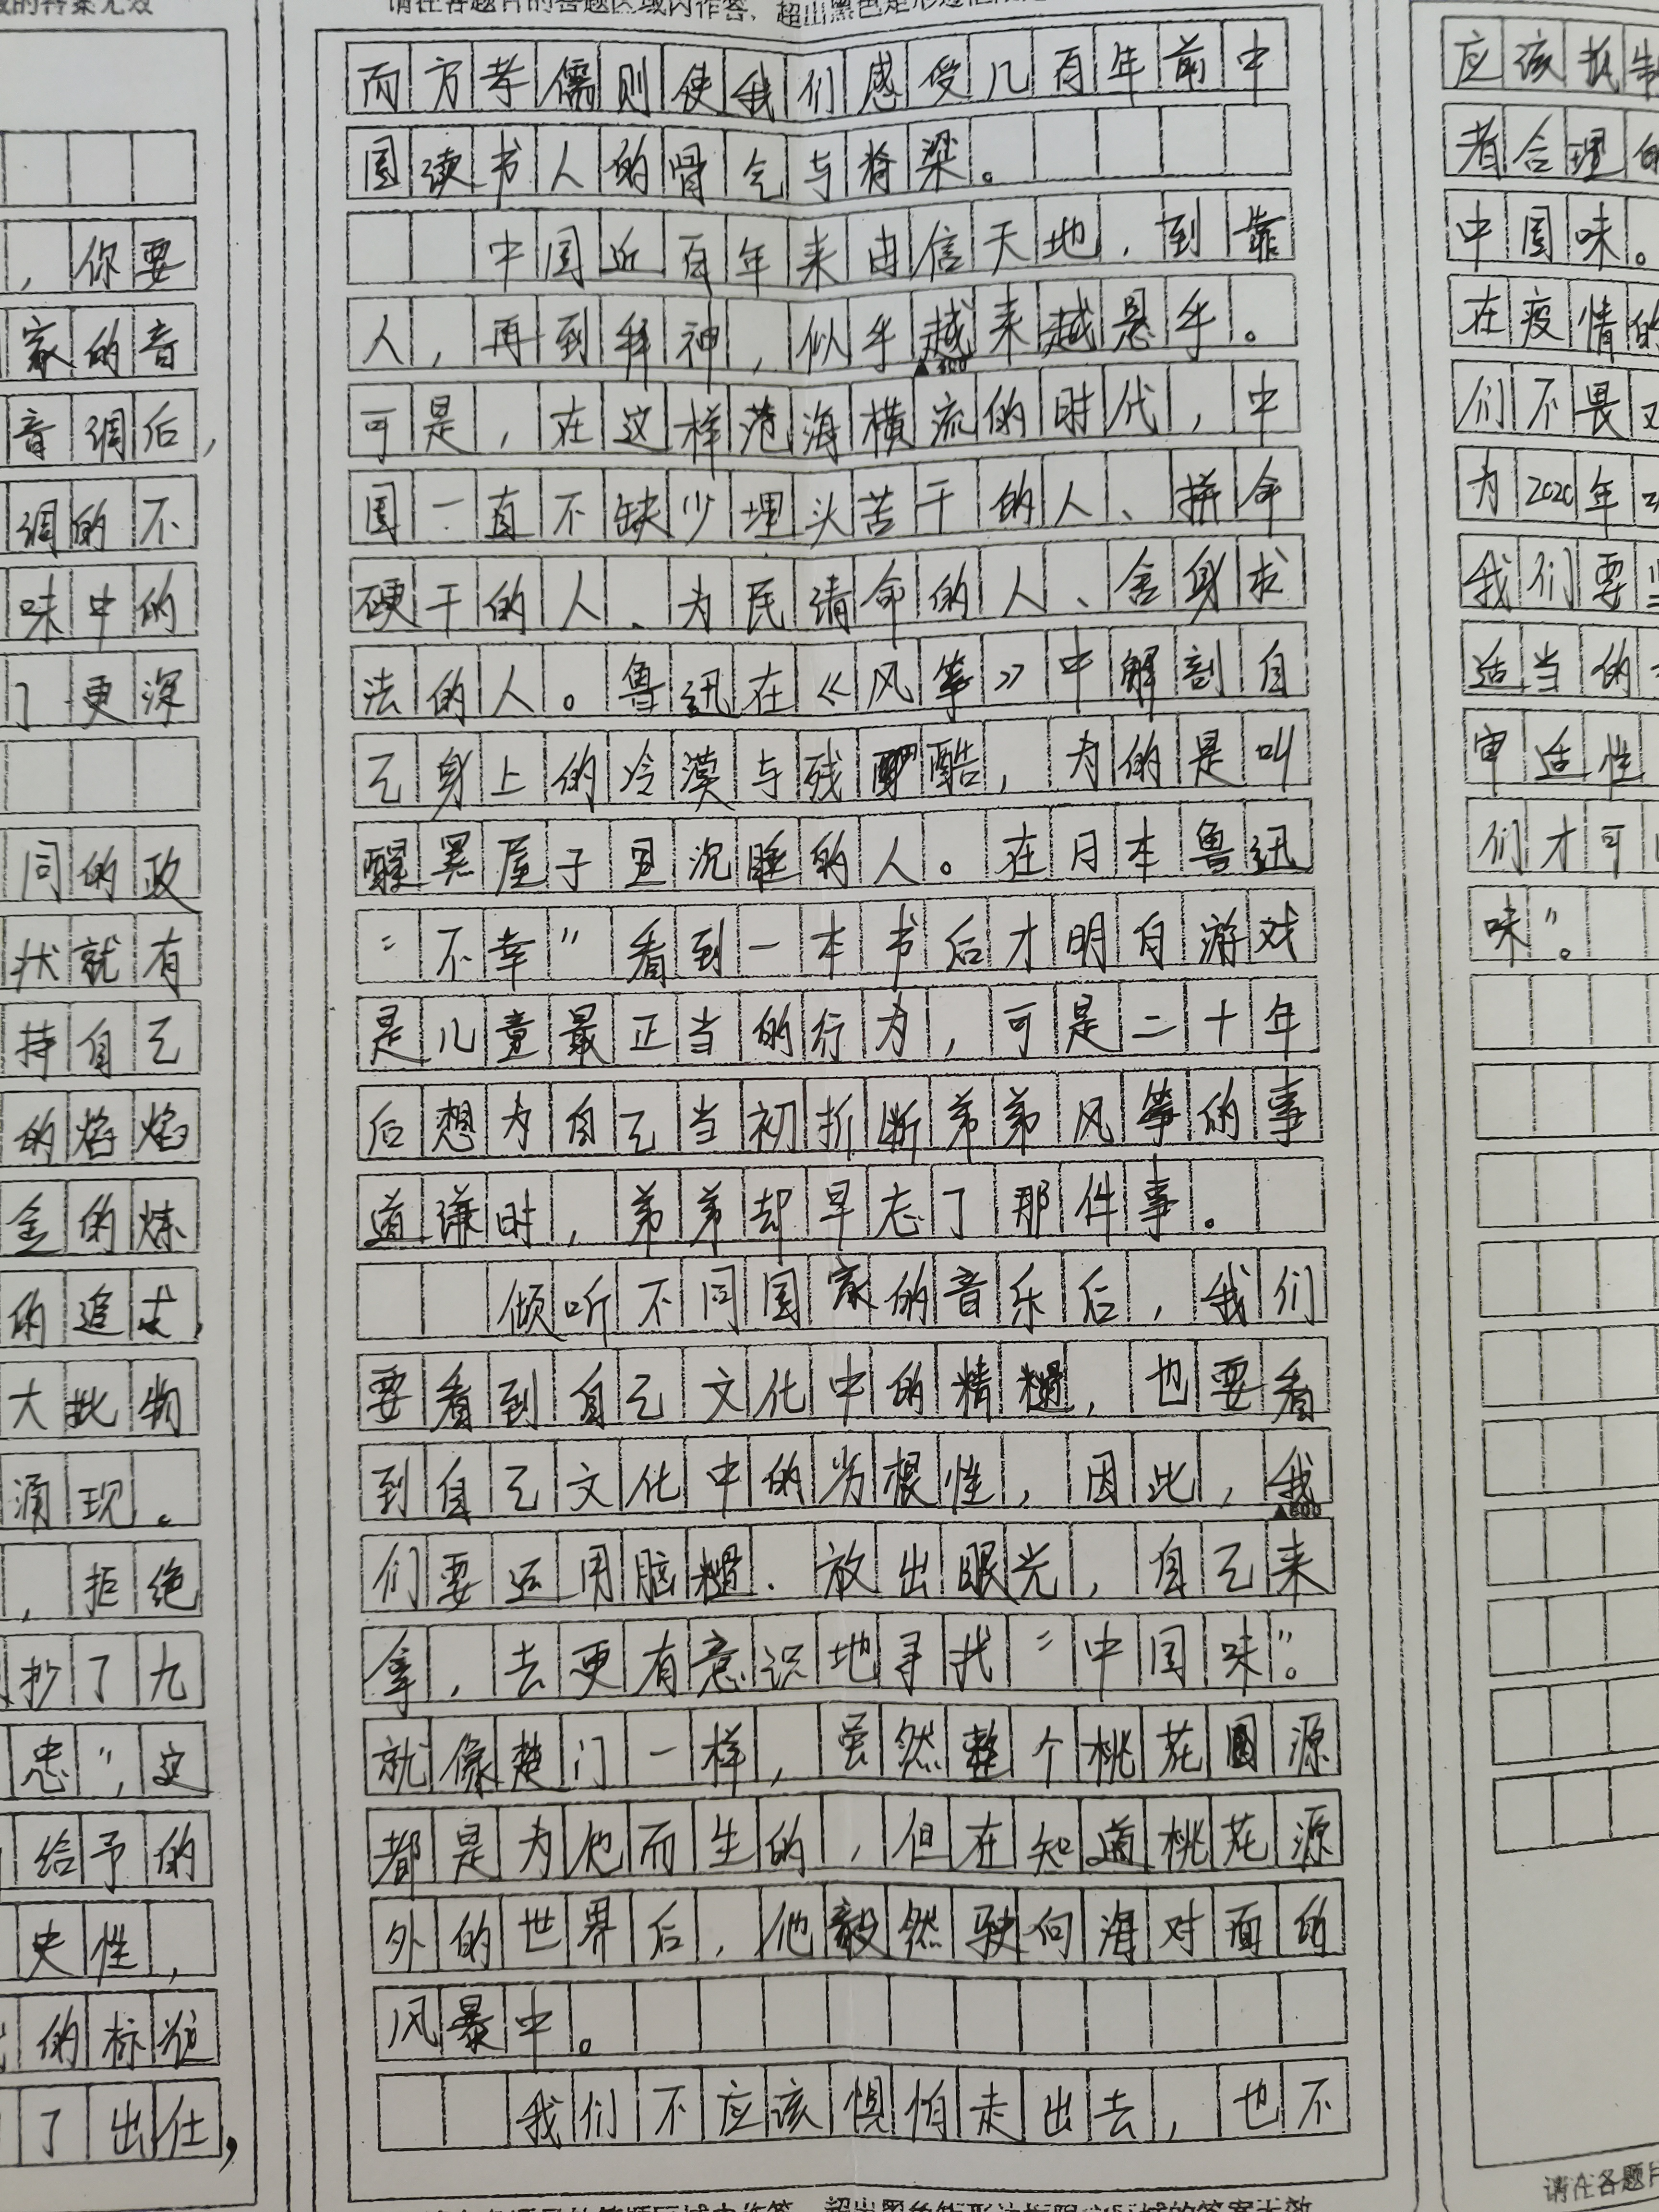 请在各题目的答题区域内作答，超出黑色矩形边框限定
而方孝儒则使我们感受几百年前中
国读书人的骨气与脊梁。
中国近百年来由信天地，到靠
人，再到拜神，似乎越来越悬乎。
可是，在这样范海横流的时代，中
国一直不缺少埋头苦干的人、拼命
硬干的人、为民请命的人、舍身求
法的人。鲁迅在《风筝》中解剖自
己身上的冷漠与残酷，为的是叫
醒黑屋子里沉睡的人。在日本鲁迅
“不幸”看到一本书后才明白游戏
是儿童最正当的行为，可是二十年
后想为自己当初折断弟弟风筝的事
道谦时，弟弟却早忘了那件事。
倾听不同国家的音乐后，我们
要看到自己文化中的精髓，也要看
到自己文化中的劣根性，因此，我
们要运用脑髓．放出眼光，自己来
拿，去更有意识地寻找“中国味”。
就像楚门一样，虽然整个桃花源
都是为他而生的，但在知道桃花源
外的世界后，他毅然驶向海对面的
风暴中。
我们不应该惧怕走出去，也不
的答案无效
，你要
家的音
音调后，
调的不
味中的
了更深
同的政
状就有
持自己
的焰焰
金的炼
的追求，
大批物
涌现。
，拒绝
抄了九
忠”，这
给予的
史性，
的标
了出仕，
应该抵制
者合理的
中国味。
在疫情的
们不畏
为2020年
我们要
适当的
审适性
们才可
味”。
▲400
▲600
请在各题目